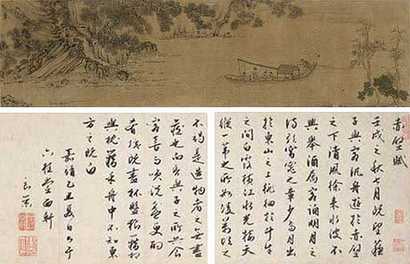 赤壁賦
壬戌之秋七月既望蘇
子與客泛舟遊於赤壁
之下清風徐來水波不
興舉酒屬客誦明月之
詩歌窈窕之章少焉月出
於東山之上徘徊於斗牛
之間白露橫江水光接天
縱一葦之所如凌萬頃之
不竭是造物者之無盡
藏也而吾與子之所共食
客喜而笑洗盞更酌
肴核既盡杯盤狼藉相
與枕藉乎舟中不知東
方之既白
嘉靖丑夏
六桂堂西軒